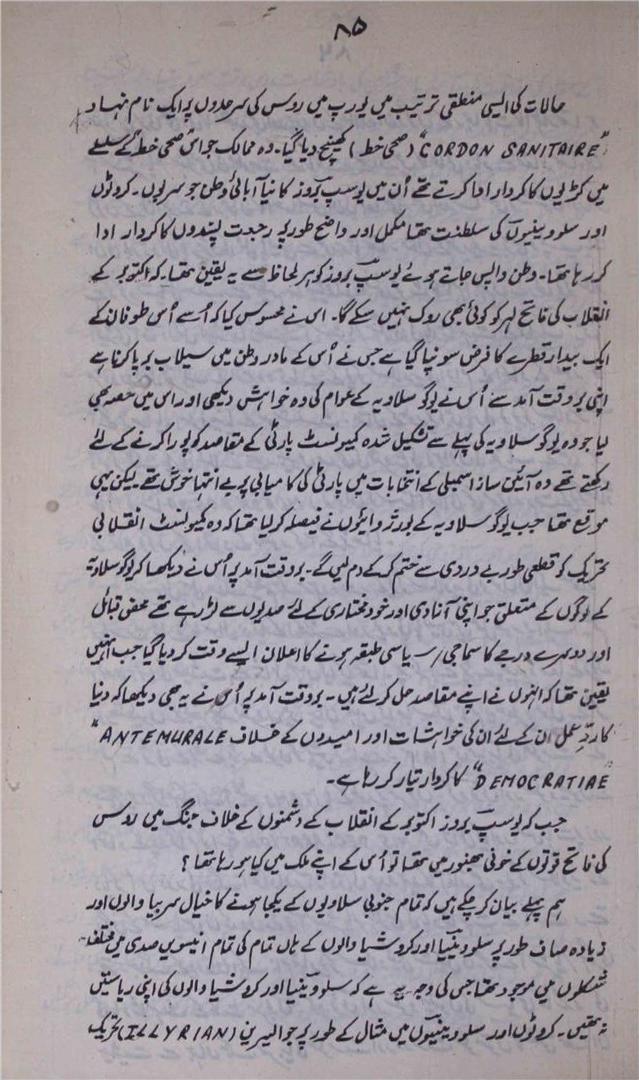 ۸۵
حالات کی ایسی منطقی ترتیب میں یورپ میں روس کی سرحدوں پر ایک نام نہاد
"CORDON SANITAIRE" (صحی خط) کھینچ دیا گیا۔ وہ ممالک جو اس صحی خط کے سلسلے
میں کڑیوں کا کردار ادا کرتے تھے اُن میں یوسپ بروز کا نیا آبائی وطن جو سربوں۔ کروٹوں
اور سلووینیوں کی سلطنت تھا مکمل اور واضح طور پر رجعت پسندوں کا کردار ادا
کر رہا تھا۔ وطن واپس جاتے ہوئے یوسپ بروز کو ہر لحاظ سے یہ یقین تھا۔ کہ اکتوبر کے
انقلاب کی فاتح لہر کو کوئی بھی روک نہیں سکے گا۔ اس نے محسوس کیا کہ اُسے اُس طوفان کے
ایک بیدار قطرے کا فرض سونپا گیا ہے جس نے اُس کے مادر وطن میں سیلاب برپا کرنا ہے
اپنی بروقت آمد سے اُس نے یوگوسلاویہ کے عوام کی وہ خواہش دیکھی اور اس میں حصہ بھی
لیا جو وہ یوگوسلاویہ کی پہلے سے تشکیل شدہ کمیونسٹ پارٹی کے مقاصد کو پورا کرنے کے لئے
رکھتے تھے وہ آئین ساز اسمبلی کے انتخابات میں پارٹی کی کامیابی پر بے انتہا خوش تھے لیکن یہی
موقع تھا جب یوگوسلاویہ کے بورژوایؤں نے فیصلہ کر لیا تھا کہ وہ کمیونسٹ انقلابی
تحریک کو قطعی طور بے دردی سے ختم کر کے دم لیں گے۔ بروقت آمد پر اُس نے دیکھا کہ یوگوسلاویہ
کے لوگوں کے متعلق جو اپنی آزادی اور خودمختاری کے لئے صدیوں سے لڑ رہے تھے محض قبائل
اور دوسرے درجے کا سماجی / سیاسی طبقہ ہونے کا اعلان ایسے وقت کر دیا گیا جب انہیں
یقین تھا کہ انہوں نے اپنے مقاصد حل کر لئے ہیں۔ بروقت آمد پر اُس نے یہ بھی دیکھا کہ دنیا
کا ردِ عمل ان کے لئے ان کی خواہشات اور امیدوں کے خلاف "ANTEMURALE
DEMOCRATIAE" کا کردار تیار کر رہا ہے۔
جب کہ یوسپ بروز اکتوبر کے انقلاب کے دشمنوں کے خلاف جنگ میں روس
کی فاتح قوتوں کے خونی بھنور میں تھا تو اُس کے اپنے ملک میں کیا ہو رہا تھا ؟
ہم پہلے بیان کر چکے ہیں کہ تمام جنوبی سلاویوں کے یکجا ہونے کا خیال سربیا والوں اور
زیادہ صاف طور پر سلووینیا اور کروشیا والوں کے ہاں تمام کی تمام انیسویں صدی میں مختلف
شکلوں میں موجود تھا جس کی وجہ یہ ہے کہ سلووینیا اور کروشیا والوں کی اپنی ریاستیں
نہ تھیں۔ کروٹوں اور سلووینیوں میں مثال کے طور پر جو الیرین (ILLYRIAN) تحریک